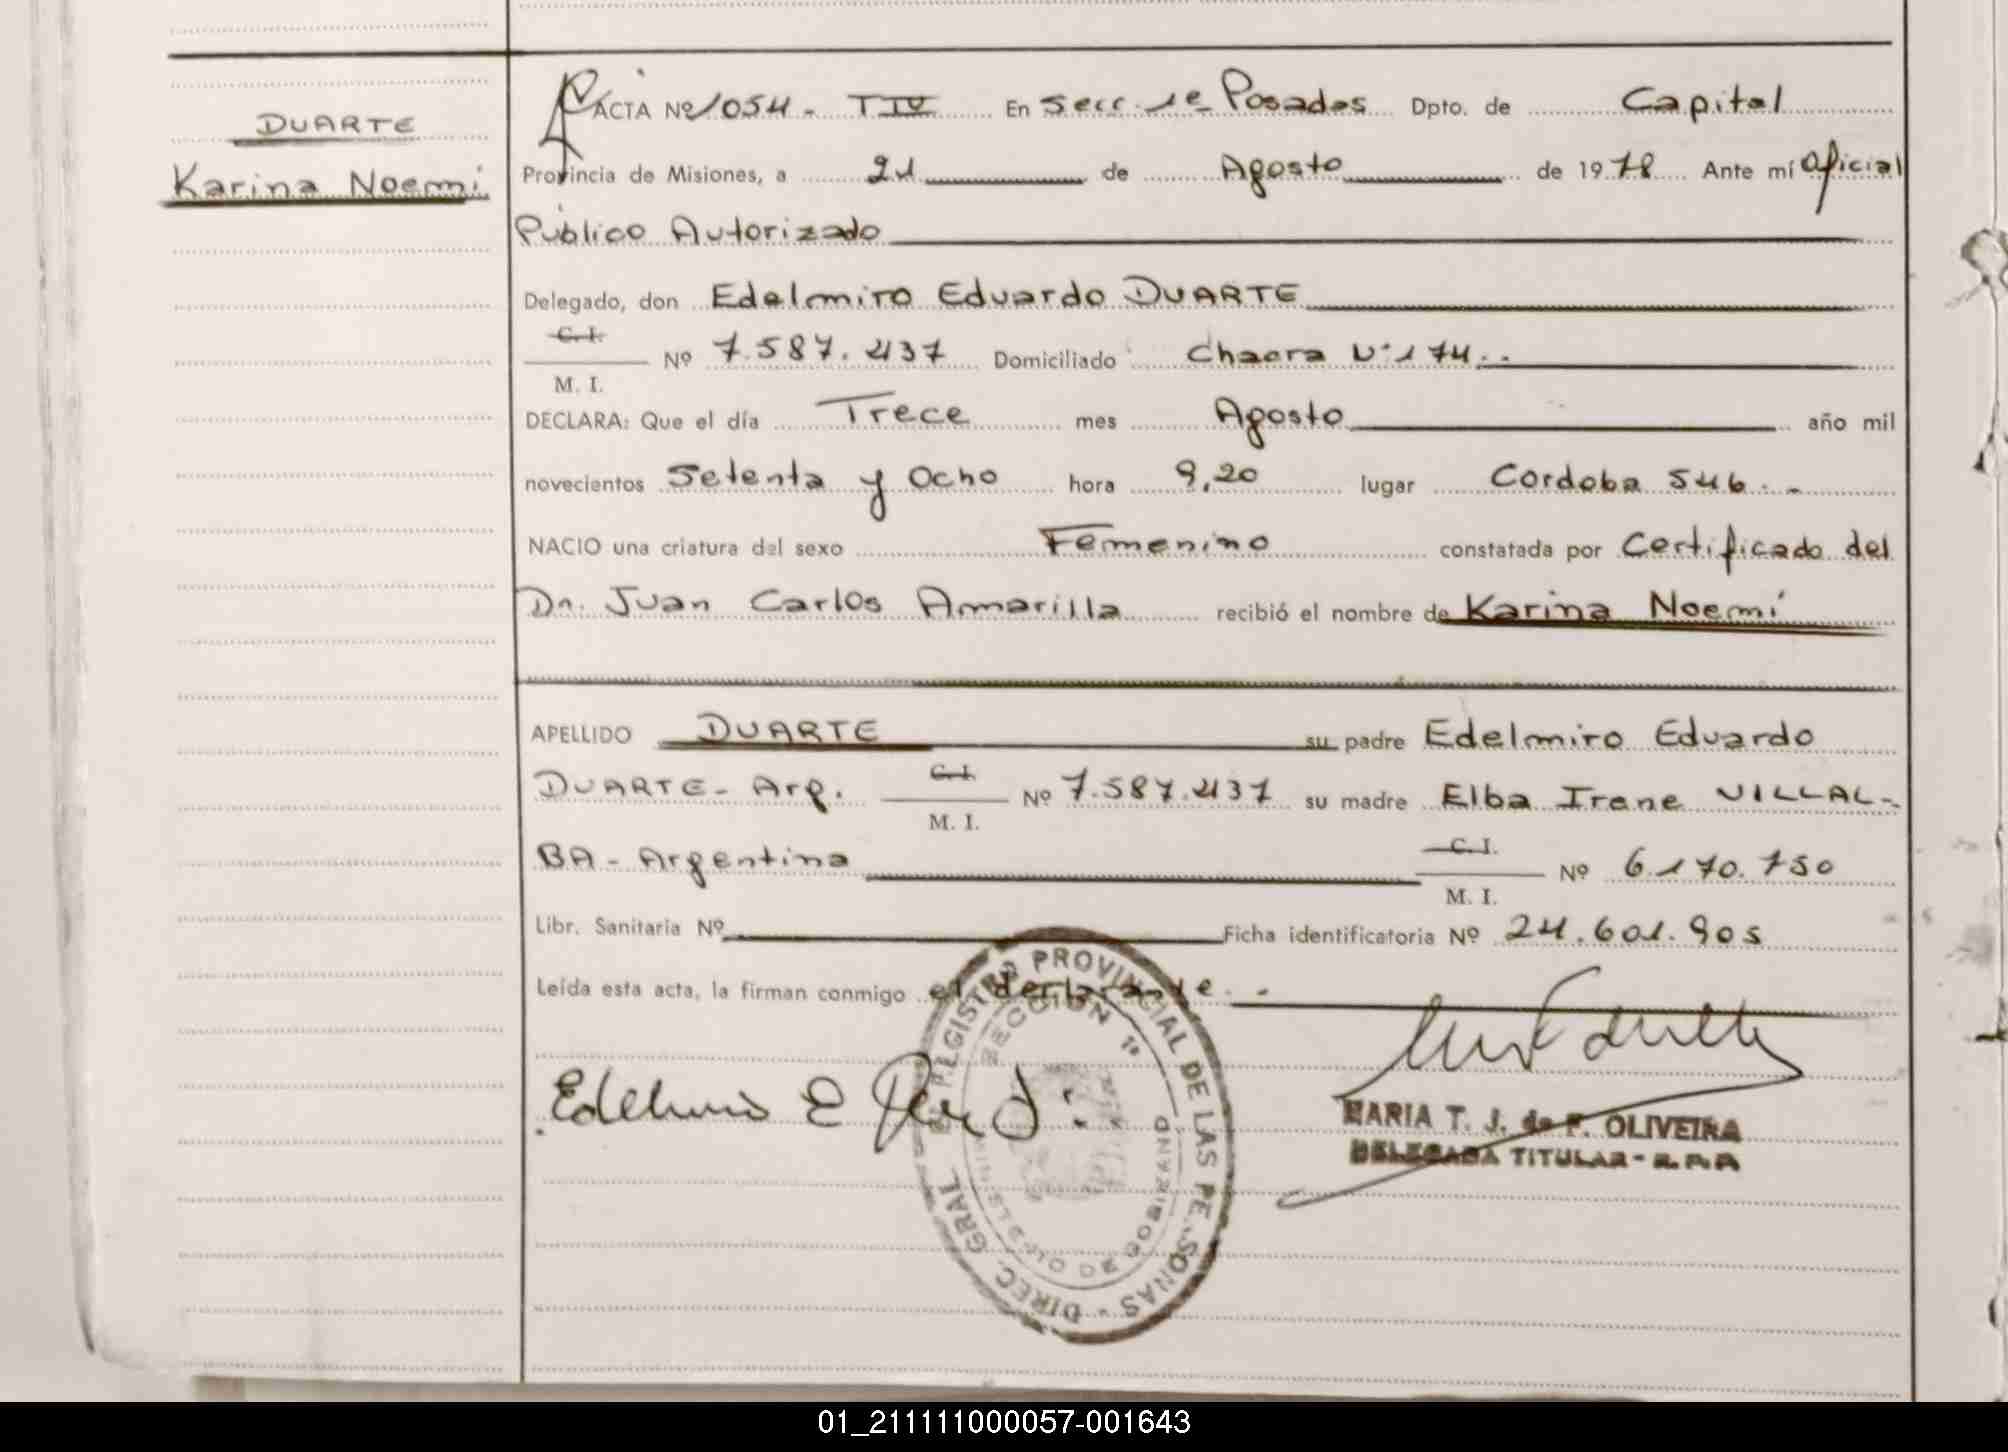 DUARTE
Karina Noemi
ACTA Nº 1054 - T IV En Secc. 1e Posadas Dpto. de Capital
Provincia de Misiones, a 21 de Agosto de 1978 Ante mí Oficial
Público Autorizado
Delegado, don Edelmiro Eduardo DUARTE
C. I.
M. I.
Nº 7.587.437 Domiciliado Chacra Nº 174.
DECLARA: Que el día Trece mes Agosto año mil
novecientos Setenta y Ocho hora 9,20 lugar Cordoba 546.-
NACIO una criatura del sexo Femenino constatada por Certificado del
Dr. Juan Carlos Amarilla recibió el nombre de Karina Noemí
APELLIDO DUARTE su padre Edelmiro Eduardo
DUARTE- Arg. C. I. M. I. Nº 7.587.437 su madre Elba Irene VILLAL-
BA - Argentina C. I. M. I. Nº 6.170.750
Libr. Sanitaria Nº Ficha identificatoria Nº 24.601.905
Leída esta acta, la firman conmigo el declarante.-
Edelmiro E
DIREC. GRAL. REGISTRO PROVINCIAL DE LAS PERSONAS
SECCION 1º
MARIA T. J. de F. OLIVEIRA
DELEGADA TITULAR - R.P.P.
01_211111000057-001643